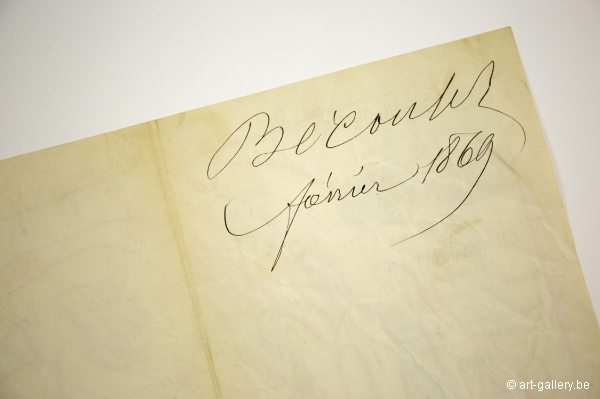 février 1869
© art-gallery.be